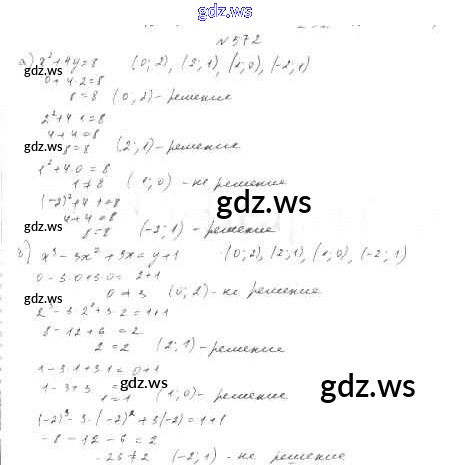 gdz.ws
№ 572
а) x² + 4y = 8 (0; 2), (2; 1), (1; 0), (-2; 1)
gdz.ws
0 + 4 · 2 = 8
8 = 8 (0; 2) - решение
2² + 4 · 1 = 8
4 + 4 = 8
gdz.ws
8 = 8 (2; 1) - решение
1² + 4 · 0 = 8
1 ≠ 8 (1; 0) - не решение
(-2)² + 4 · 1 = 8
gdz.ws
4 + 4 = 8
gdz.ws
8 = 8 (-2; 1) - решение
б) x³ - 3x² + 3x = y + 1 (0; 2), (2; 1), (1; 0), (-2; 1)
0 - 3 · 0 + 3 · 0 = 2 + 1
0 ≠ 3 (0; 2) - не решение
gdz.ws
2³ - 3 · 2² + 3 · 2 = 1 + 1
8 - 12 + 6 = 2
2 = 2 (2; 1) - решение
gdz.ws
1 - 3 · 1 + 3 · 1 = 0 + 1
1 - 3 + 3 =
gdz.ws
gdz.ws
1 = 1 (1; 0) - решение
(-2)³ - 3 · (-2)² + 3(-2) = 1 + 1
- 8 - 12 - 6 = 2
gdz.ws
- 26 ≠ 2 (-2; 1) - не решение